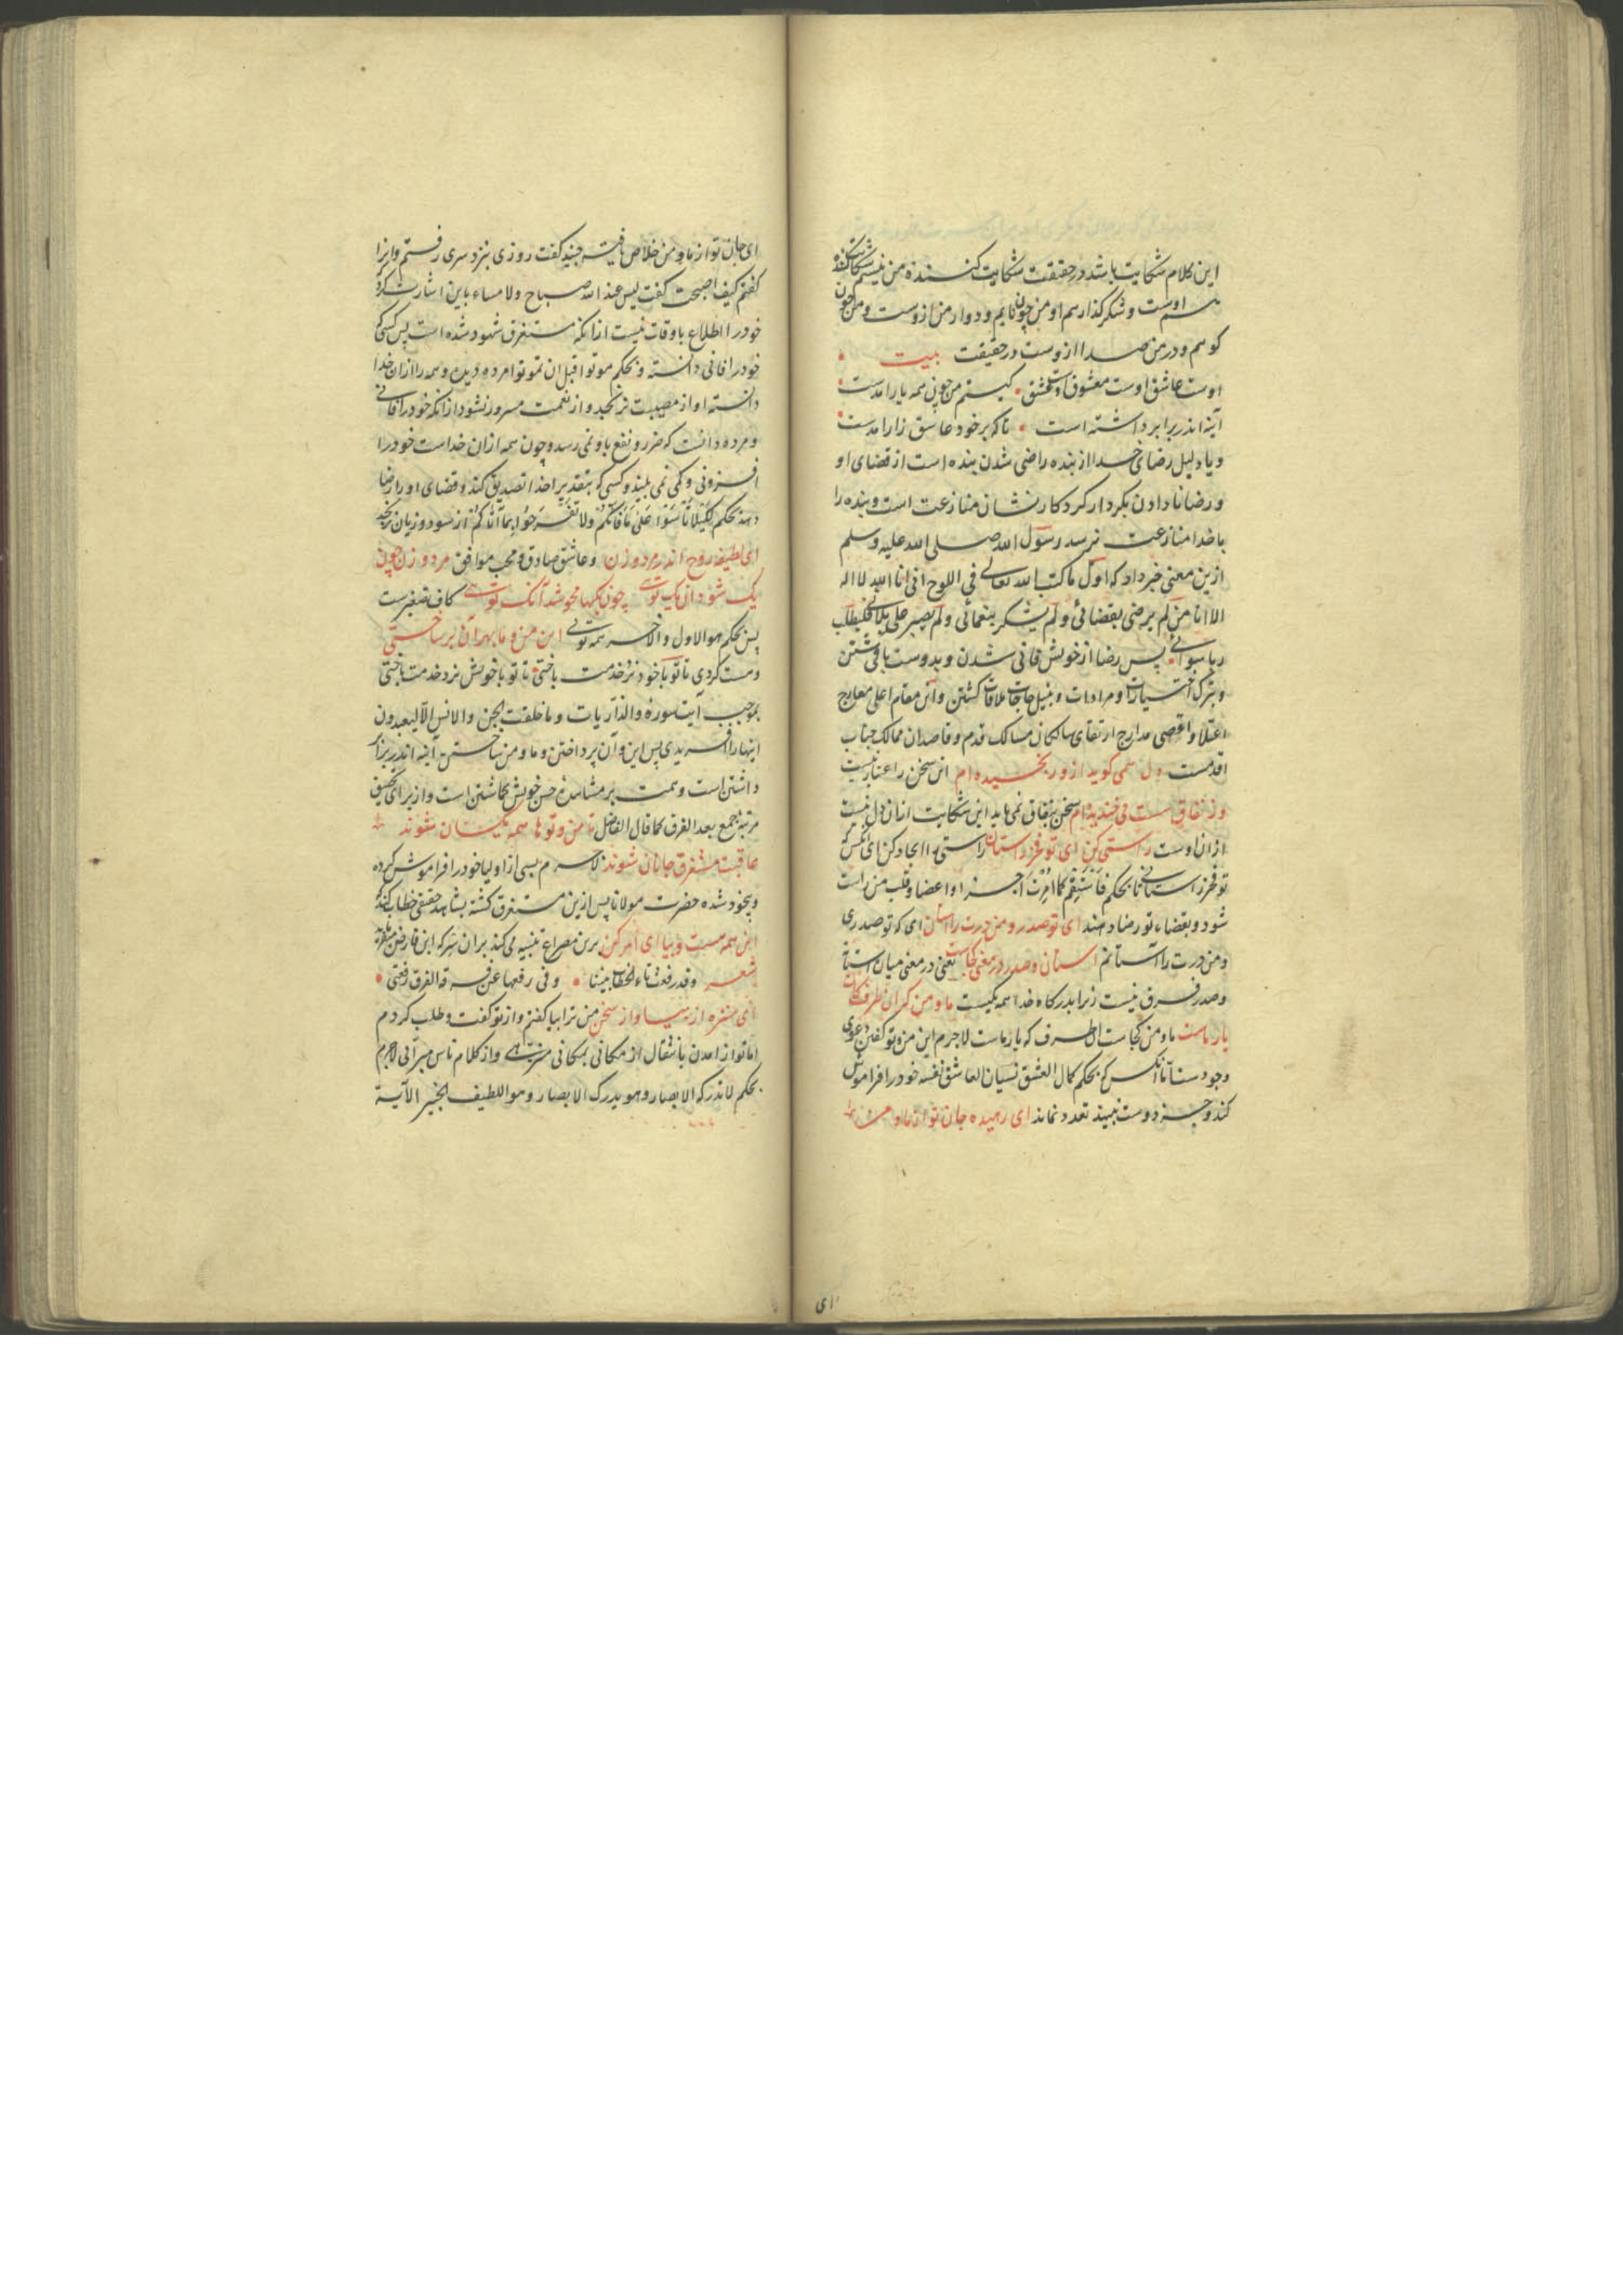 این کلام شکایت باشد در حقیقت شکایت کننده من نیستم شکایت کننده
هم اوست و شکر گذار هم او من چون نایم و دوار من ازوست و من چون
کوهم و در من صدا ازوست در حقیقت بیت
اوست عاشق اوست معشوق اوست عشق کیستم من چون همه یار آمدست
آینه اندر برابر داشته است تا که بر خود عاشق زار آمدست
و یا دلیل رضای خدا از بنده راضی شدن بنده است از قضای او
و رضا نا دادن بکردار کردکار نشان منازعت است و بنده را
با خدا منازعت نرسد رسول الله صلی الله علیه وسلم
ازین معنی خبر داد که اول ما کتب الله تعالی فی اللوح انی انا الله لا اله
الا انا من لم یرضی بقضائی و لم یشکر بنعمائی و لم یصبر علی بلائی فلیطلب
ربا سوائی پس رضا از خویش فانی شدن و بدوست باقی کشتن
و بترک اختیارات و مرادات و بنیل حاجات ملاقات کشتن و این مقام اعلی معارج
اعتلا و اقصی مدارج ارتقای سالکان مسالک قدم و قاصدان ممالک جناب
اقدمست دل همی کوید ازو رنجیده ام این سخن را اعتبار نیست
وز نفاق سست می خندیده ام سخن بنفاق نمی ماید این شکایت ازان دل نیست
ازان اوست راستی کن ای تو فخر راستان راستی را ایجاد کن ای آنکس که
تو فخر راستانی تا بحکم فاستقم کما امرت اجزا و اعضا و قلب من راست
شود و بقضاء تو رضا دهند ای تو صدر و من درت را آستان ای که تو صدری
و من درت را آستانم آستان و صدر در معنی کجاست یعنی در معنی میان آستانه
و صدر فرق نیست زیرا بدرکاه خدا همه یکیست ما و من کو آن طرف کان
یار ماست ما و من کجاست آن طرف که یار ماست لاجرم این من و تو کفتن دعوی
وجودست اما آنکس که بحکم کمال العشق نسیان العاشق نفسه خود را فراموش
کند و جز دوست نبیند تعدد نماند ای رهیده جان تو از ما و من
ای
ای جان تو از ما و من خلاص یافته جنید کفت روزی بنزد سری رفتم و او را
کفتم کیف اصبحت کفت لیس عند الله صباح ولا مساء باین اشارت کرد که
خود را اطلاع باوقات نیست ازانکه مستغرق شهود شده است پس کسی که
خود را فانی دانسته و بحکم موتوا قبل ان تموتوا مرده دیده و همه را ازان خدا
دانسته او از مصیبت نرنجد و از نعمت مسرور نشود ازانکه خود را فانی
و مرده دانست که ضرر و نفع باو نمی رسد و چون همه ازان خداست خود را
افزونی و کمی نمی بیند و کسی که بتقدیر خدا تصدیق کند و قضای او را رضا
دهد بحکم لکیلا تأسوا علی ما فاتکم ولا تفرحوا بما آتاکم از سود و زیان نرنجد
ای لطیفه روح اندر مرد و زن و عاشق صادق و محب موافق مرد و زن چون
یک شود آن یک توئی چونک یکها محو شد آنک توئی کاف تصغیرست
پس بحکم هو الاول والآخر همه توئی این من و ما بهر آن بر ساختی
و هست کردی تا تو با خود نرد خدمت باختی تا تو با خویش نرد خدمت باختی
بموجب آیت سوره والذاریات و ما خلقت الجن والانس الا لیعبدون
اینها را آفریدی پس این و آن پرداختن و ما و من ساختن آینه اندر برابر
داشتن است و همت بر مشاهده حسن خویش کماشتن است و از برای تحقیق
مرتبه جمع بعد الفرق کما قال الفاضل تا من و توها همه یکسان شوند
عاقبت مستغرق جانان شوند لاجرم بسی از اولیا خود را فراموش کرده
و بیخود شده حضرت مولانا پس ازین مستغرق کشته بشاهد حقیقی خطاب کند که
این همه هست و بیا ای امر کن برین مصراع تنبیه می کند بران سر که ابن فارض
شعر وقد رفعت تاء الخطاب بیننا وفی رفعها عن فرقة الفرق رفعتی
ای منزه از بیا و از سخن من ترا بیا کفتم و از تو کفت و طلب کردم
اما تو از آمدن بانتقال از مکانی بمکانی منزهی و از کلام ناس مبرائی لاجرم
بحکم لا تدرکه الابصار وهو یدرک الابصار وهو اللطیف الخبیر الآیة